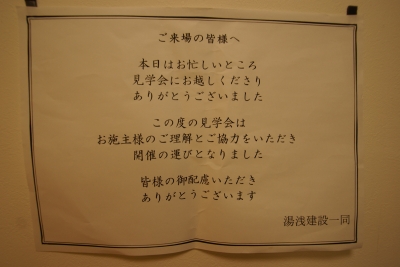 ご来場の皆様へ
本日はお忙しいところ
見学会にお越しくださり
ありがとうございました
この度の見学会は
お施主様のご理解とご協力をいただき
開催の運びとなりました
皆様の御配慮いただき
ありがとうございます
湯浅建設一同